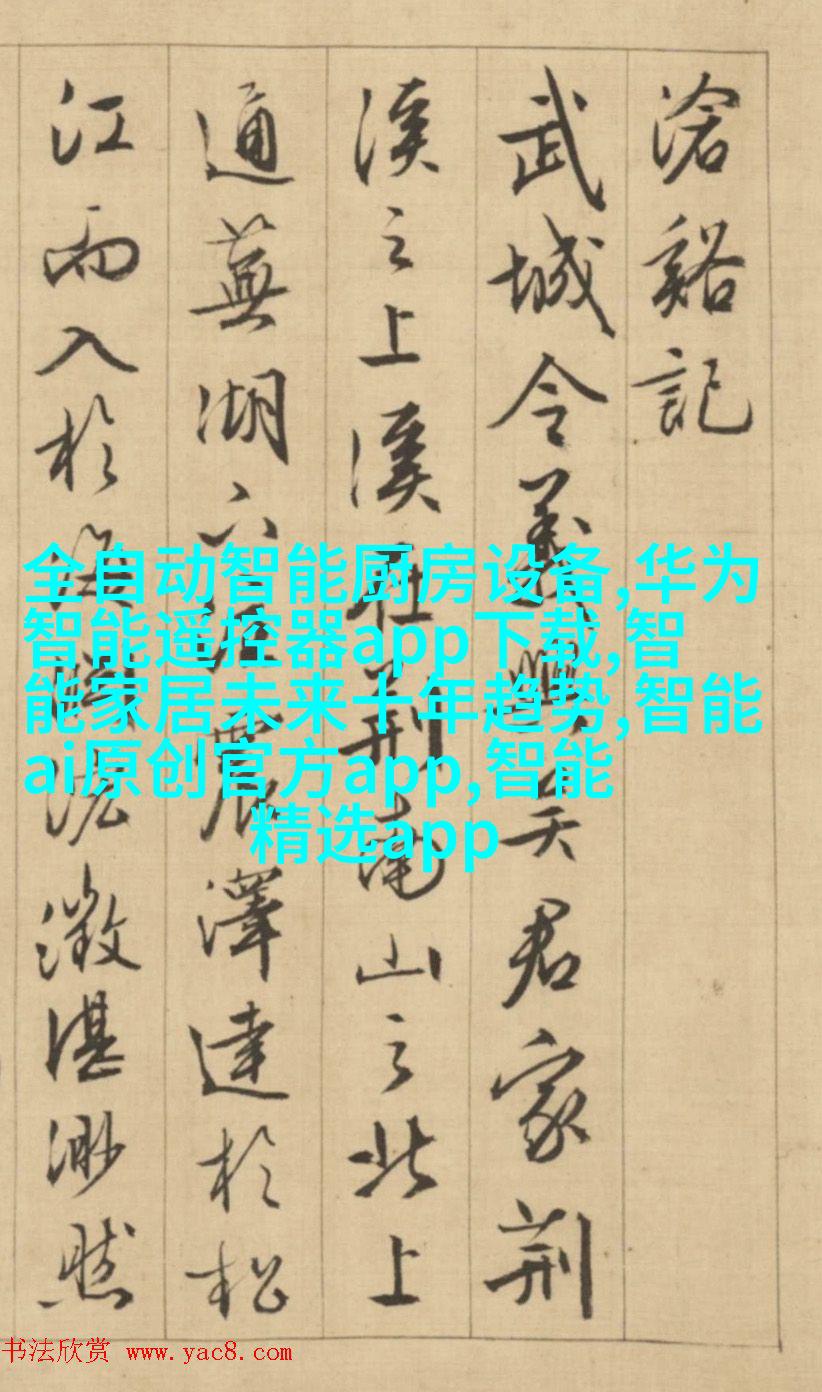 滄谿記
武城令義興吳君家荆
溪之上溪在荆南山之北上
通蕪湖下震澤達於松
江而入於澂湛渺然
全自动智能厨房设备,华为
智能遥控器app下载,智
能家居未来十年趋势,智能
ai原创官方app,智能
精选app
书法欣赏 www.yac8.com